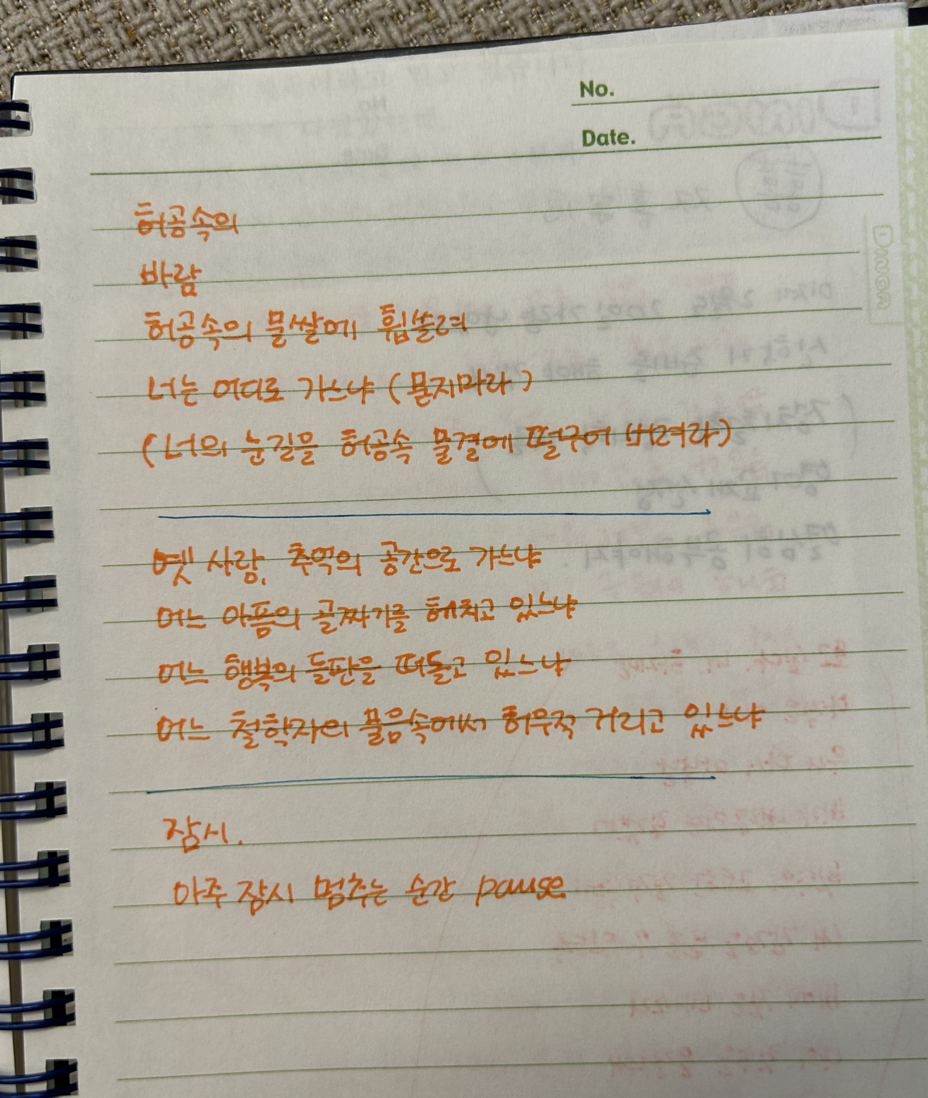 No.
Date.
허공속의
바람
허공속의 물쌀에 휩쓸려
너는 어디로 가느냐 (묻지마라)
(너의 눈길을 허공속 물결에 떨구어 버려라)
옛 사람, 추억의 공간으로 가느냐
어느 아픔의 골짜기를 헤치고 있느냐
어느 행복의 들판을 떠돌고 있느냐
어느 철학자의 물음속에서 허우적 거리고 있느냐
잠시.
아주 잠시 멈추는 순간 pause